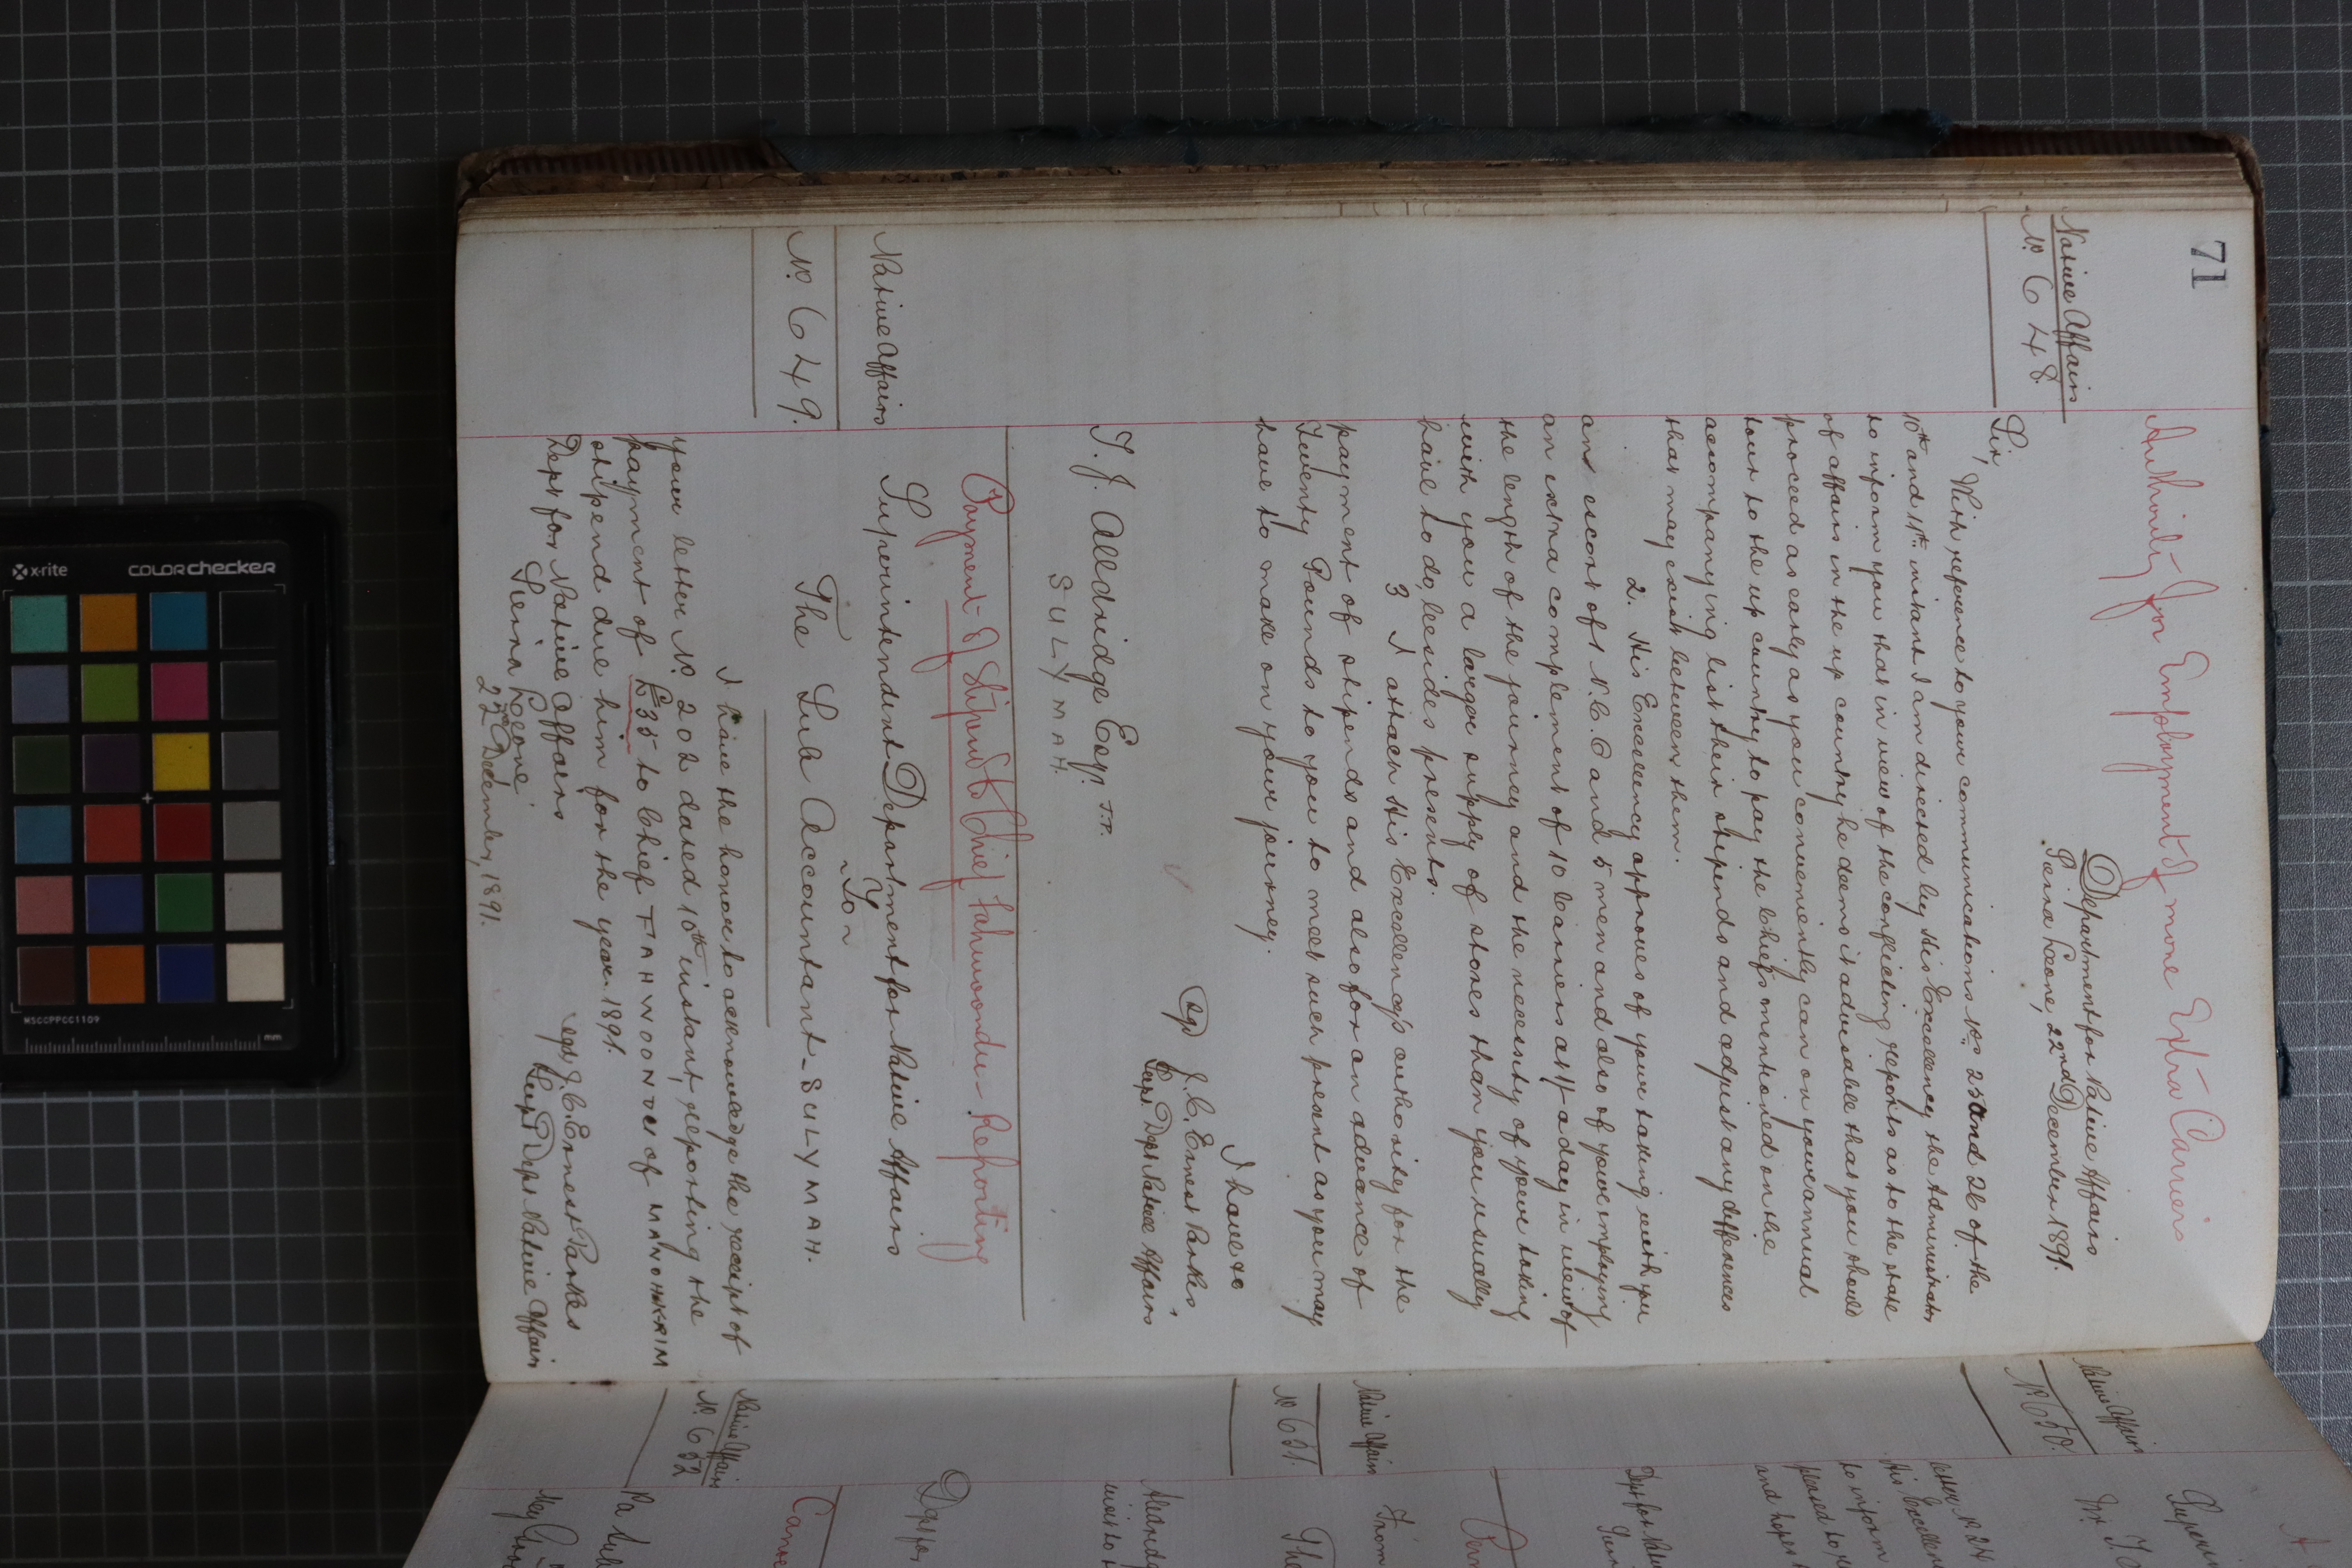 71
Authority for Employment of more Extra Carriers
Native Affairs
No. 648.
Department for Native Affairs
Sierra Leone, 22nd December 1891.
Sir,
With reference to your communications Nos 25 and 26 of the
10th and 11th instant I am directed by His Excellency the Administrator
to inform you that in view of the conflicting reports as to the state
of affairs in the up country he deems it advisable that you should
proceed as early as you conveniently can on your annual
tour to the up country to pay the Chiefs mentioned on the
accompanying list their stipends and adjust any differences
that may exist between them.
2. His Excellency approves of your taking with you
an escort of 1 N.C.O and 5 men and also of your employing
an extra complement of 10 Carriers at 1/- a day in view of
the length of the journey and the necessity of your taking
with you a larger supply of stores than you usually
have to do, besides presents.
3 I attach His Excellency's authority for the
payment of stipends and also for an advance of
Twenty Pounds to you to meet such present as you may
have to make on your journey.
I have &c
(Sgd) J. C. Ernest Parkes,
Supt. Dept Native Affairs
T. J. Alldridge Esqr. T.P.
SULYMAH.
Payment of Stipend to Chief Fahwoondu - Reporting
Native Affairs
No. 649.
Superintendent Department for Native Affairs
~ To ~
The Sub Accountant - SULYMAH.
I have the honour to acknowledge the receipt of
your letter No. 202 dated 10th instant, reporting the
payment of £35 to Chief FAHWOONDU of MANOHKRIM
stipend due him for the year 1891.
Dept for Native Affairs
Sierra Leone
22nd December, 1891.
(sgd) J. C. Ernest Parkes
Supt Dept Native Affairs
Native Affairs
No. 650.
Mr. T.
letter No. 24
His Excellen
to inform
pleased to
and hopes
Dept for Nat
Native Affairs
No. 651.
From
The
Alldridg
Dept for
Native Affairs
No. 652